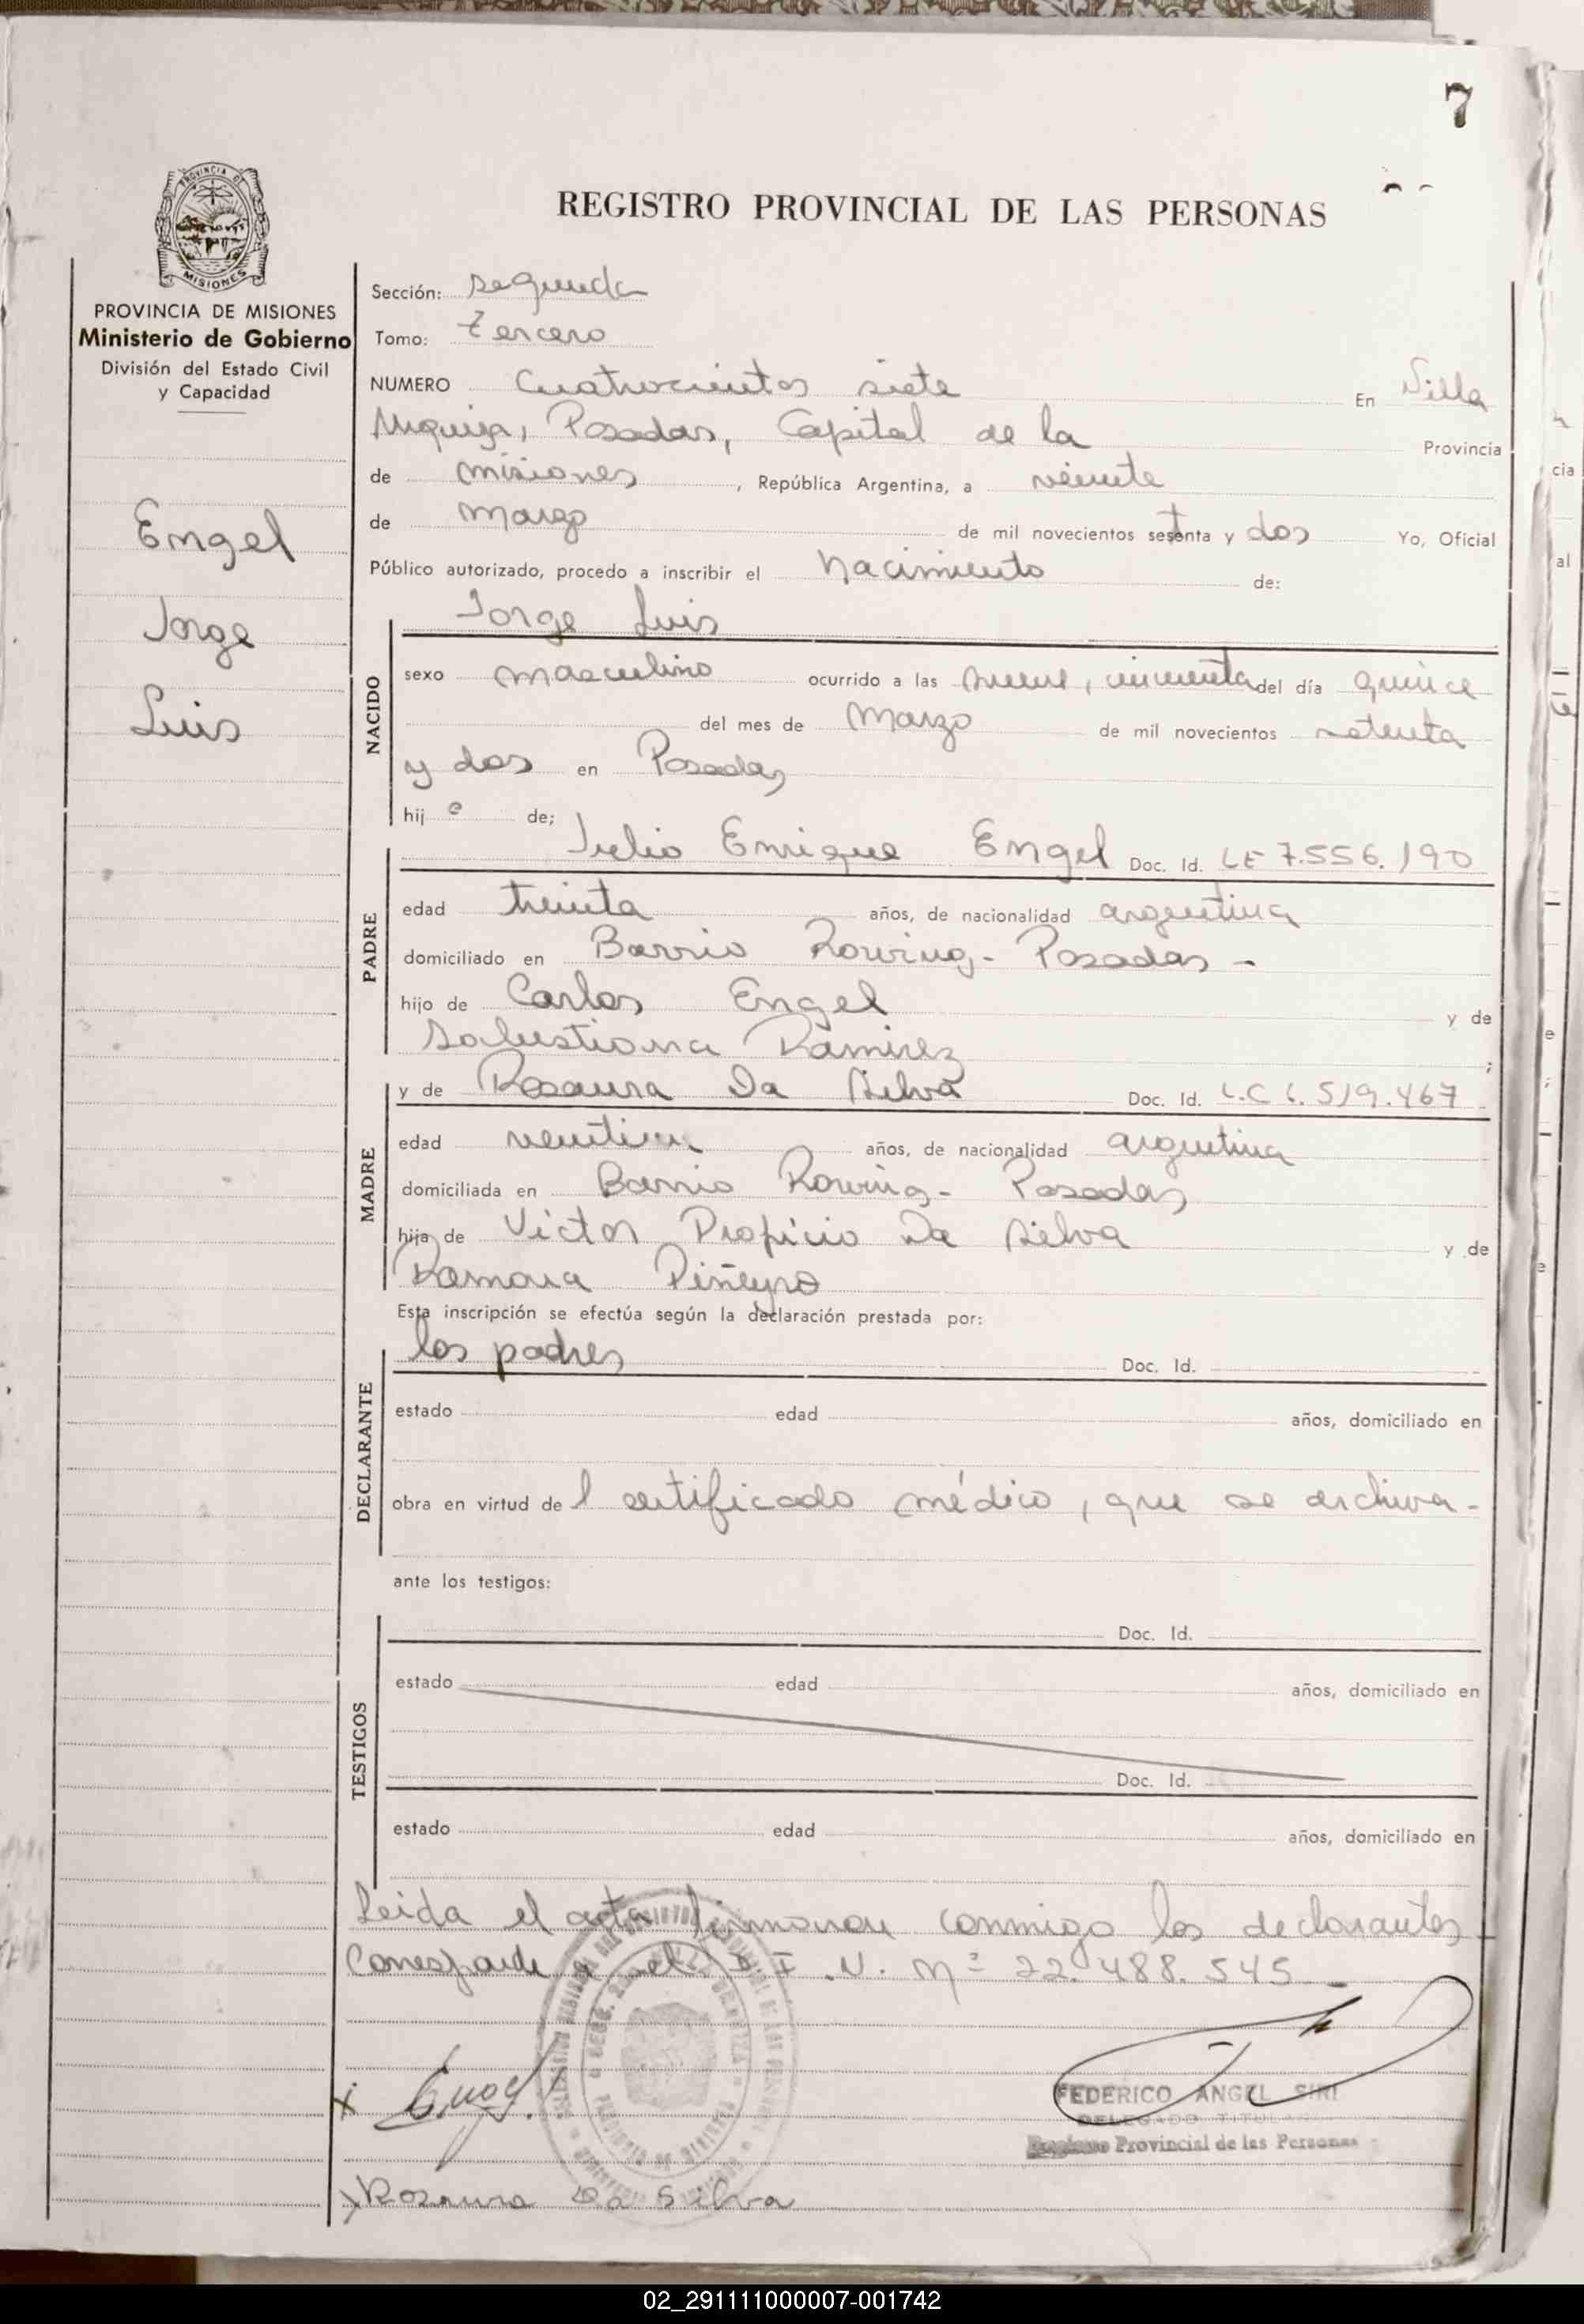 7
REGISTRO PROVINCIAL DE LAS PERSONAS
PROVINCIA DE MISIONES
Ministerio de Gobierno
División del Estado Civil
y Capacidad
Engel
Jorge
Luis
Sección: segunda
Tomo: tercero
NUMERO Cuatrocientos siete En Villa
Urquiza, Posadas, Capital de la Provincia
de misiones, República Argentina, a veinte
de marzo de mil novecientos setenta y dos Yo, Oficial
Público autorizado, procedo a inscribir el nacimiento de:
Jorge Luis
NACIDO
sexo masculino ocurrido a las nueve, cincuenta del día quince
del mes de marzo de mil novecientos setenta
y dos en Posadas
hij o de;
Julio Enrique Engel Doc. Id. LE 7.556.190
PADRE
edad treinta años, de nacionalidad argentina
domiciliado en Barrio Rowing - Posadas -
hijo de Carlos Engel y de
Salustiana Ramirez ;
y de Rosaura Da Silva Doc. Id. L.C 6.519.467
MADRE
edad años, de nacionalidad argentina
domiciliada en Barrio Rowing - Posadas
hija de Victor Propicio Da Silva y de
Ramona Piñeyro
Esta inscripción se efectúa según la declaración prestada por:
los padres Doc. Id.
DECLARANTE
estado edad años, domiciliado en
obra en virtud de l certificado médico, que se archiva -
ante los testigos:
Doc. Id.
TESTIGOS
estado edad años, domiciliado en
Doc. Id.
estado edad años, domiciliado en
Leida el acta firmaron conmigo los declarantes
Corresponde a D.F.N. Nº 22.488.545
FEDERICO ANGEL SIRI
DELEGADO TITULAR
Provincial de las Personas
x Rosaura Da Silva
02_291111000007-001742